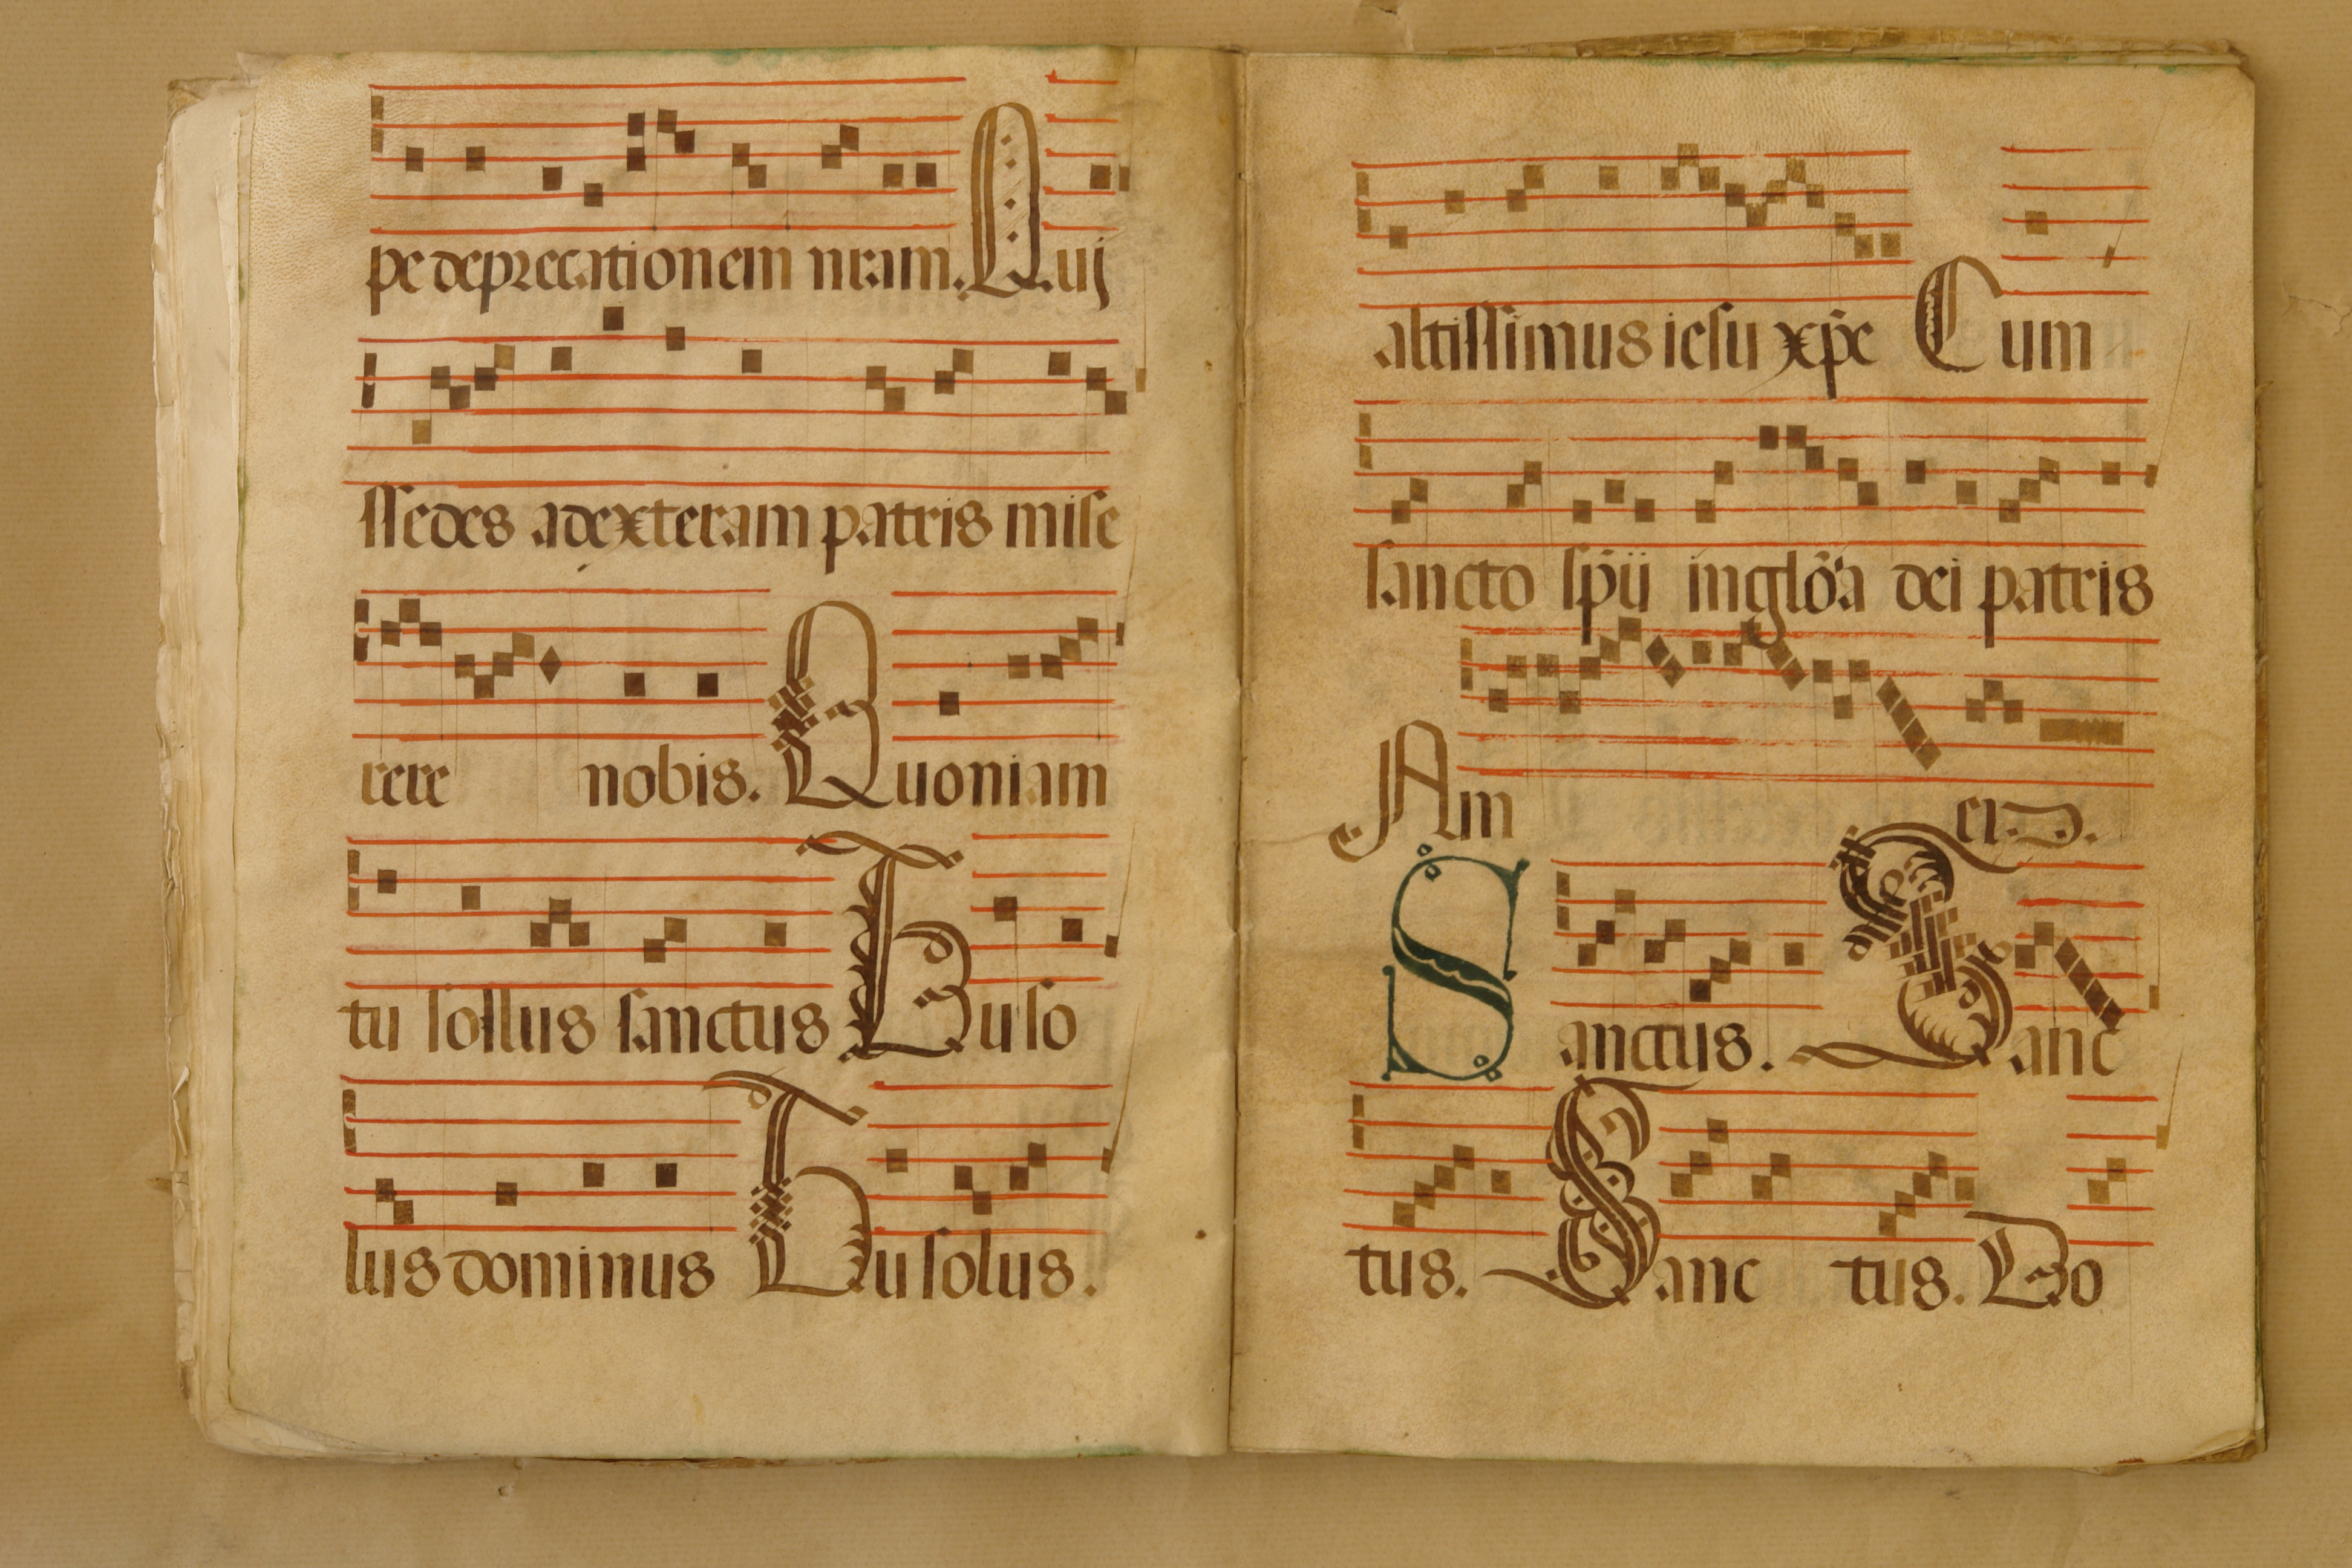 pe deprecationem nram. Qui
ssedes adexteram patris mise
rere nobis. Quoniam
tu sollus sanctus Tu so
lus dominus Tu solus.
altissimus iesu xp̄e Cum
sancto sp̄ij in glōa dei patris
Am en.
Sanctus. Sanc
tus. Sanc tus. Do